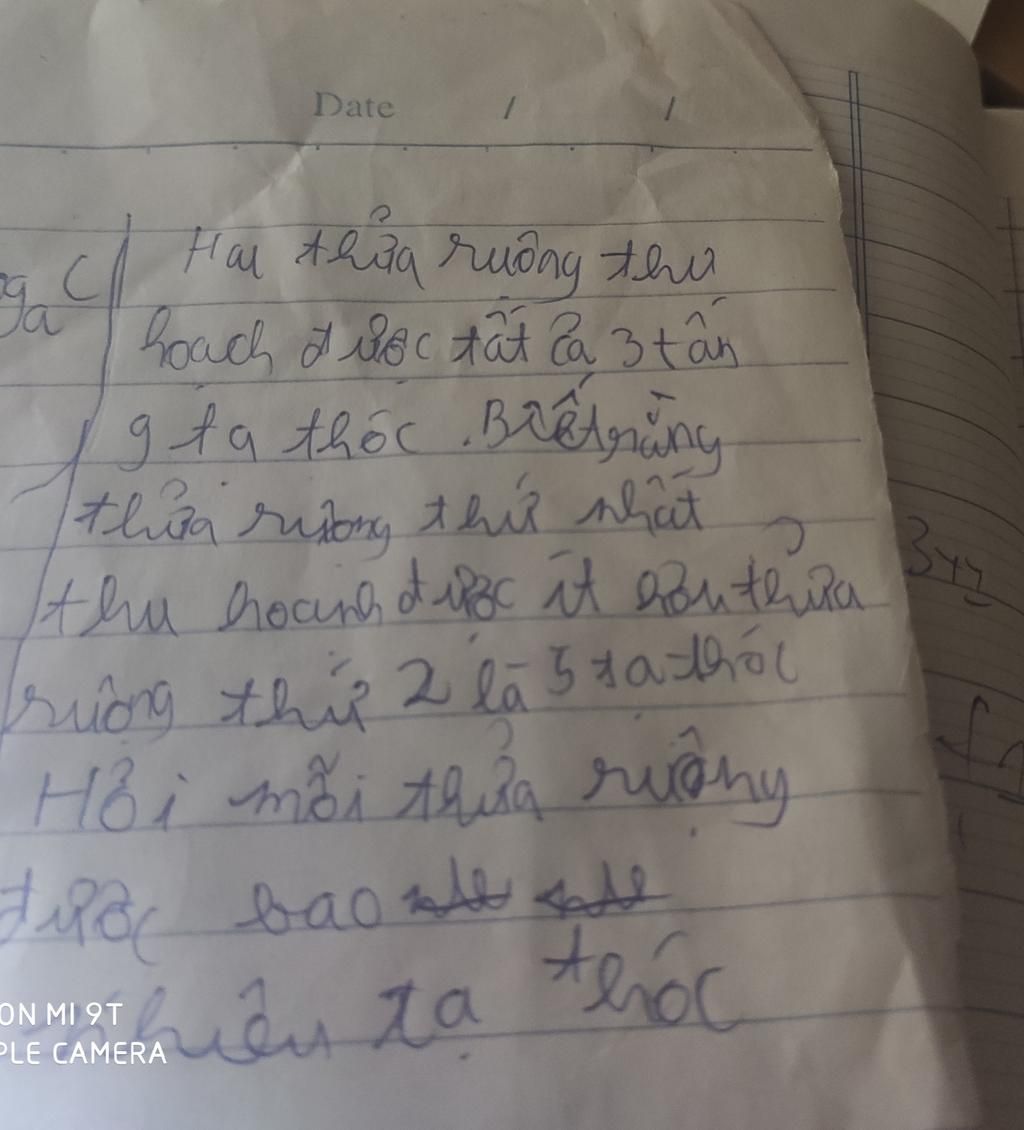 Date / /
ga C
Hai thửa ruộng thu
hoạch được tất cả 3 tấn
9 tạ thóc. Biết rằng
thửa ruộng thứ nhất
thu hoạch được ít hơn thửa
ruộng thứ 2 là 5 tạ thóc
Hỏi mỗi thửa ruộng
được bao
nhiêu tạ thóc
ON MI 9T
PLE CAMERA